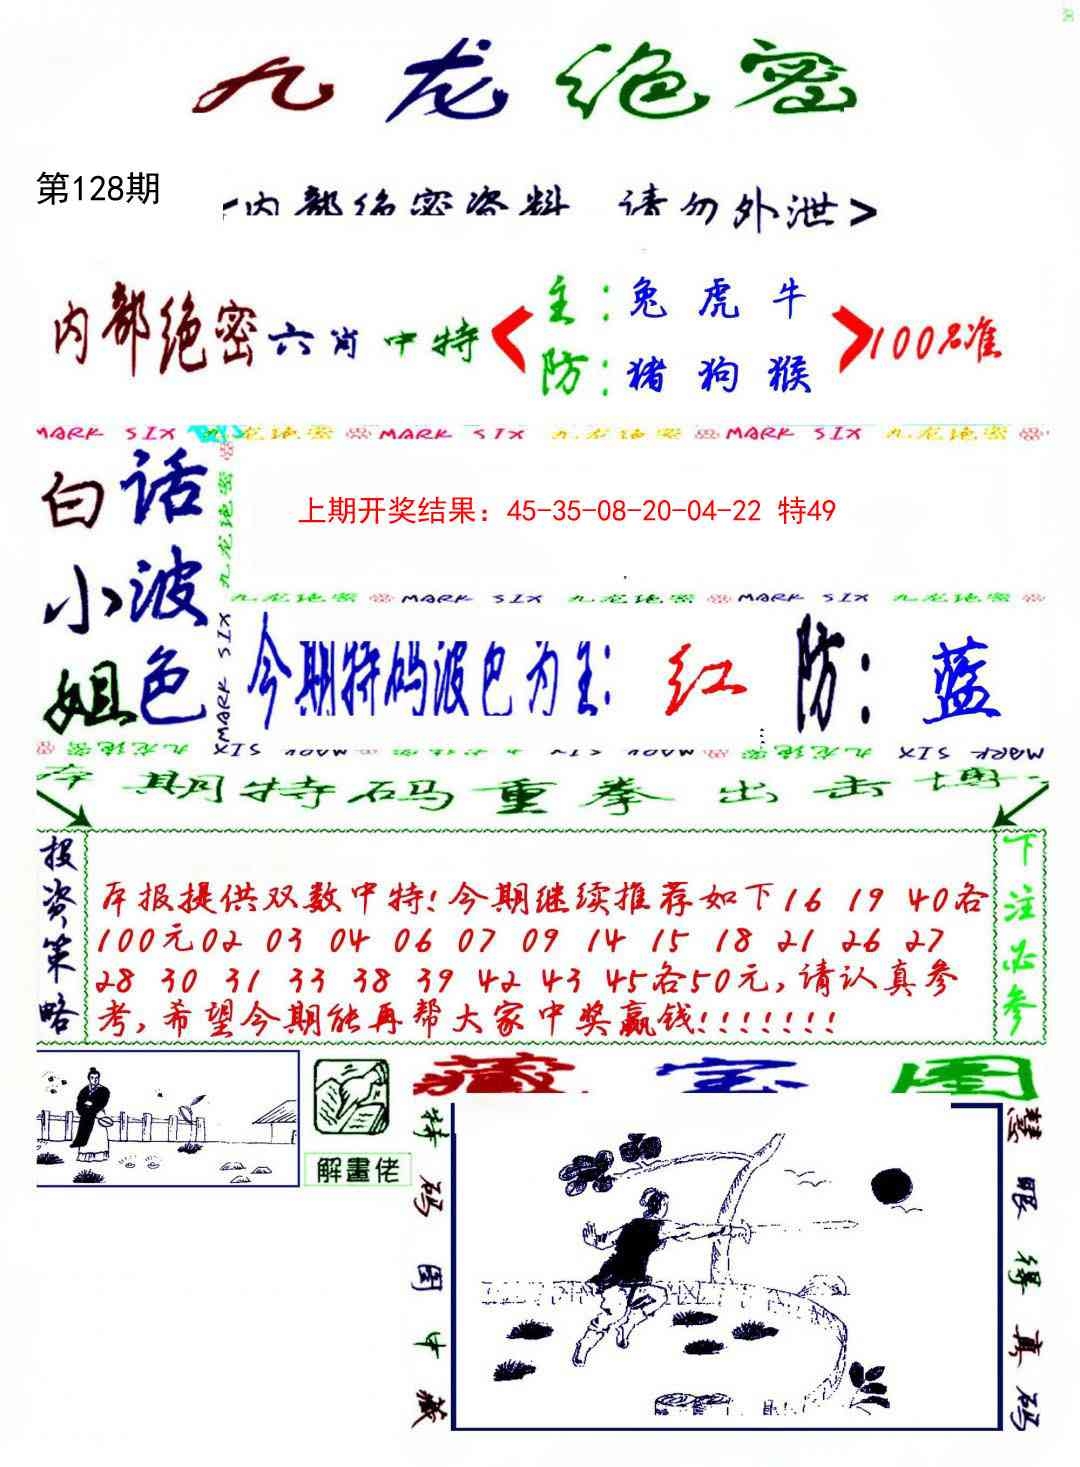 九龙绝密
第128期
<内部绝密资料 请勿外泄>
内部绝密六肖中特
主：兔 虎 牛
防：猪 狗 猴
100%准
MARK SIX 九龙绝密 MARK SIX 九龙绝密 MARK SIX 九龙绝密
白话
小波
姐色
九龙绝密
MARK SIX
上期开奖结果：45-35-08-20-04-22 特49
九龙绝密 MARK SIX 九龙绝密 MARK SIX 九龙绝密
今期特码波色为主：红 防：蓝
九龙绝密 MARK SIX 九龙绝密 MARK SIX 九龙绝密 MARK SIX
本期特码重拳出击博
投资策略
本报提供双数中特!今期继续推荐如下16 19 40各
100元02 03 04 06 07 09 14 15 18 21 26 27
28 30 31 33 38 39 42 43 45各50元,请认真参
考,希望今期能再帮大家中奖赢钱!!!!!!!
下注必参
解畫佬
藏宝图
特码图中藏
慧眼得真码